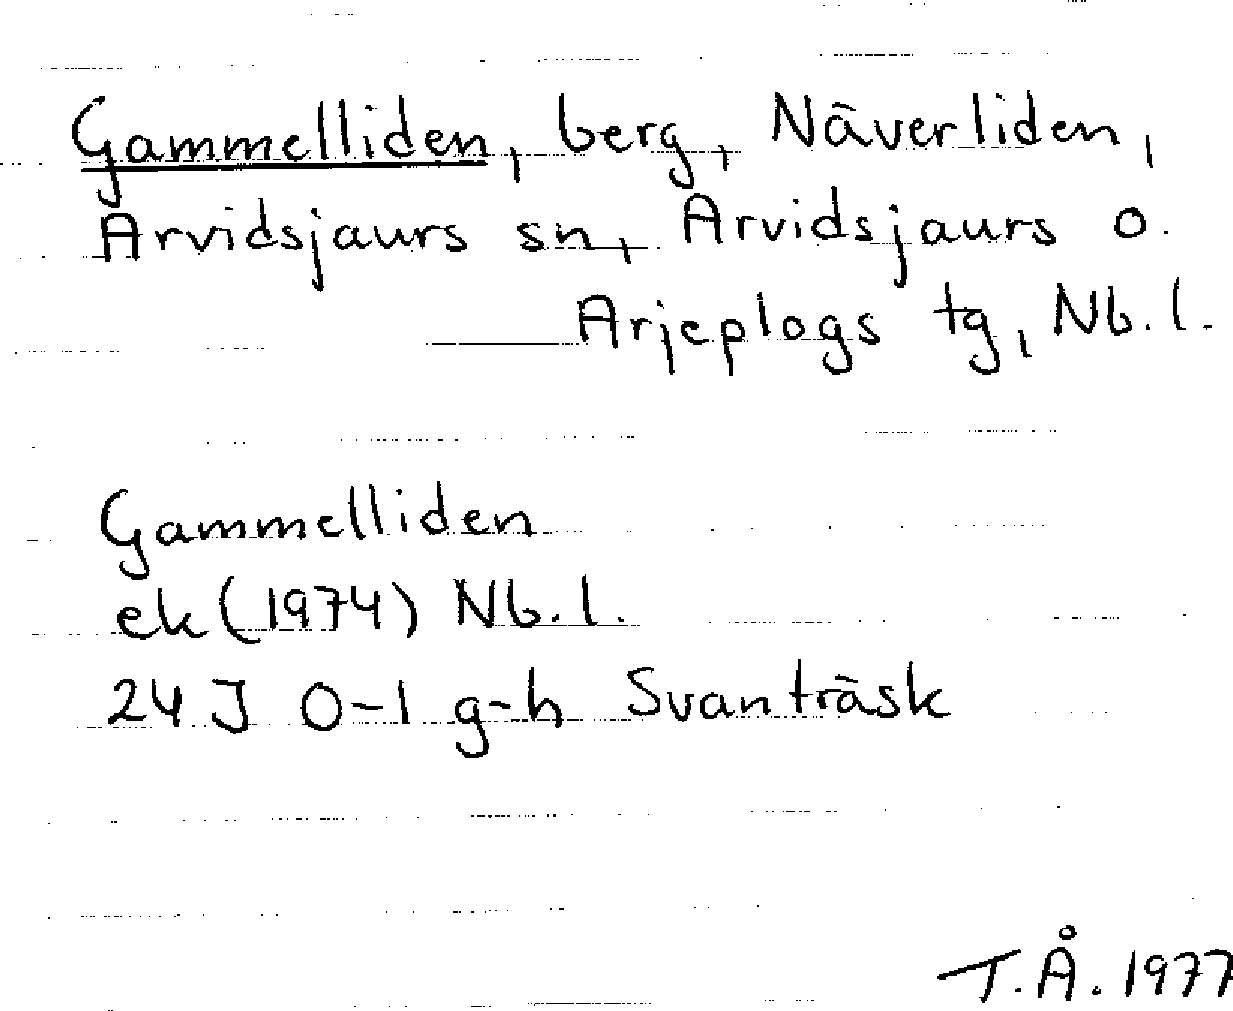 Gammelliden, berg, Näverliden,
Arvidsjaurs sn, Arvidsjaurs o.
Arjeplogs tg, Nb.l.
Gammelliden
ek (1974) Nb.l.
24 J 0-1 g-h Svanträsk
T.Å. 1977